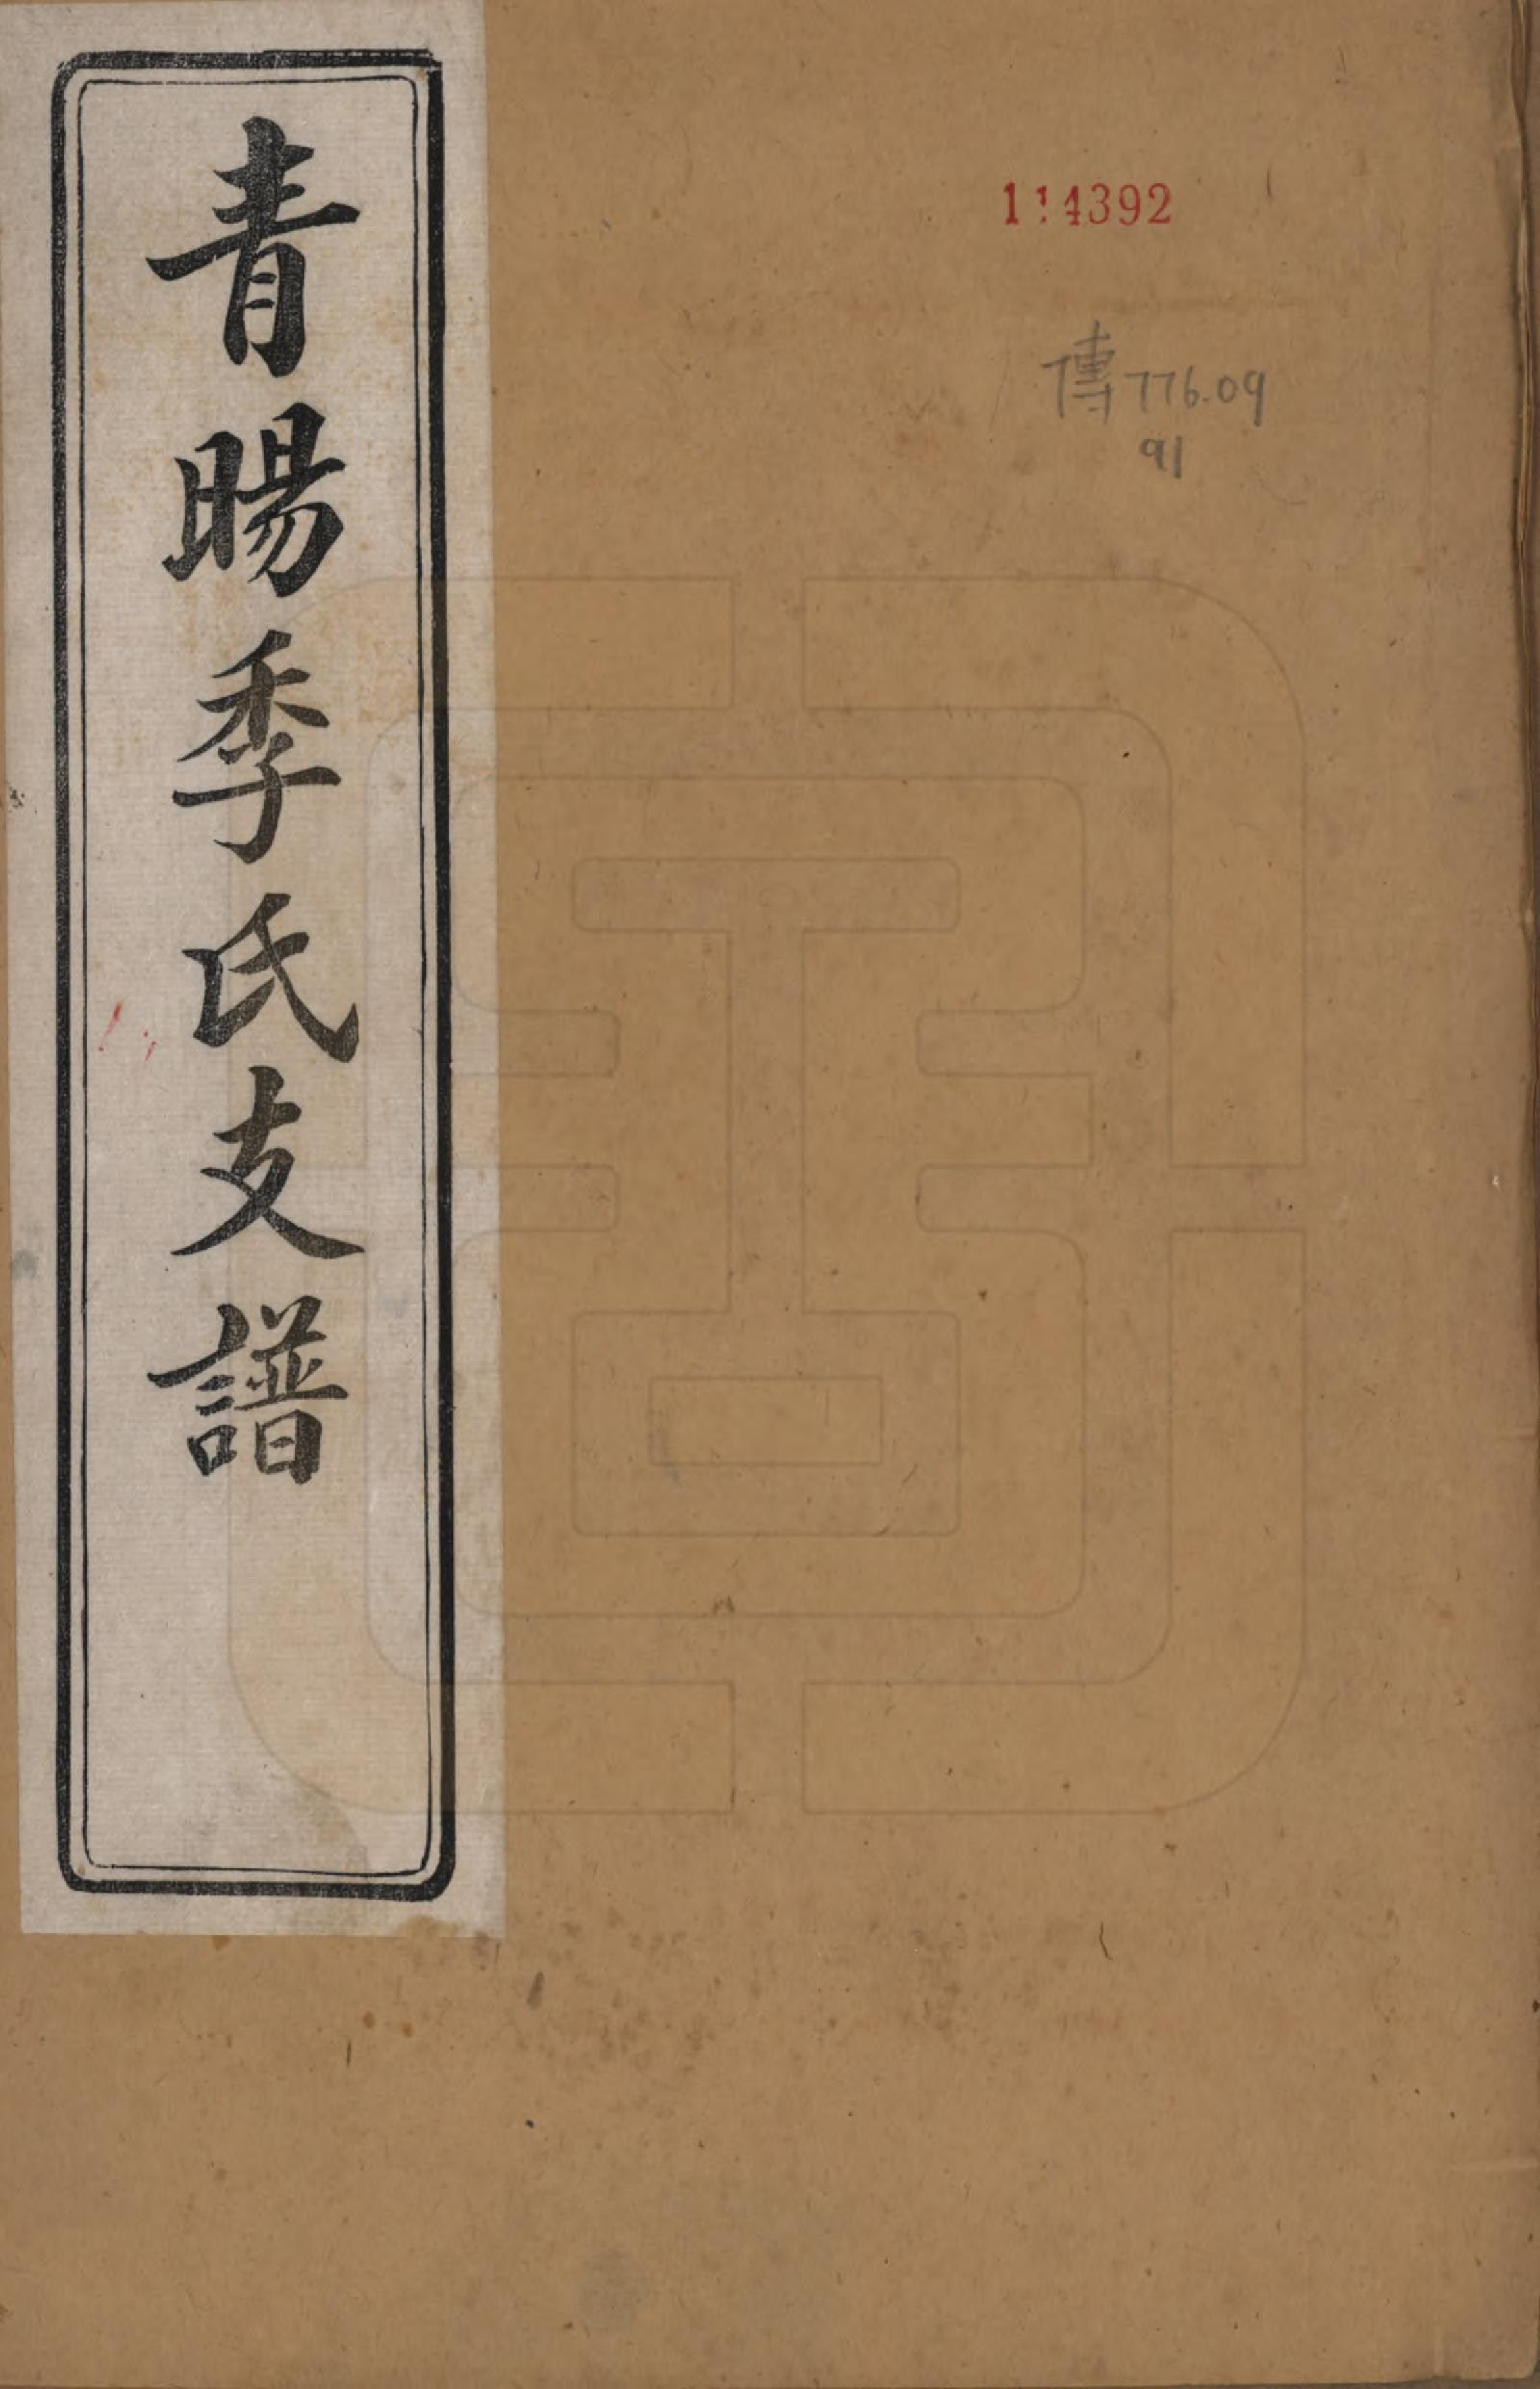 青暘季氏支譜
114392
傳776.09
91